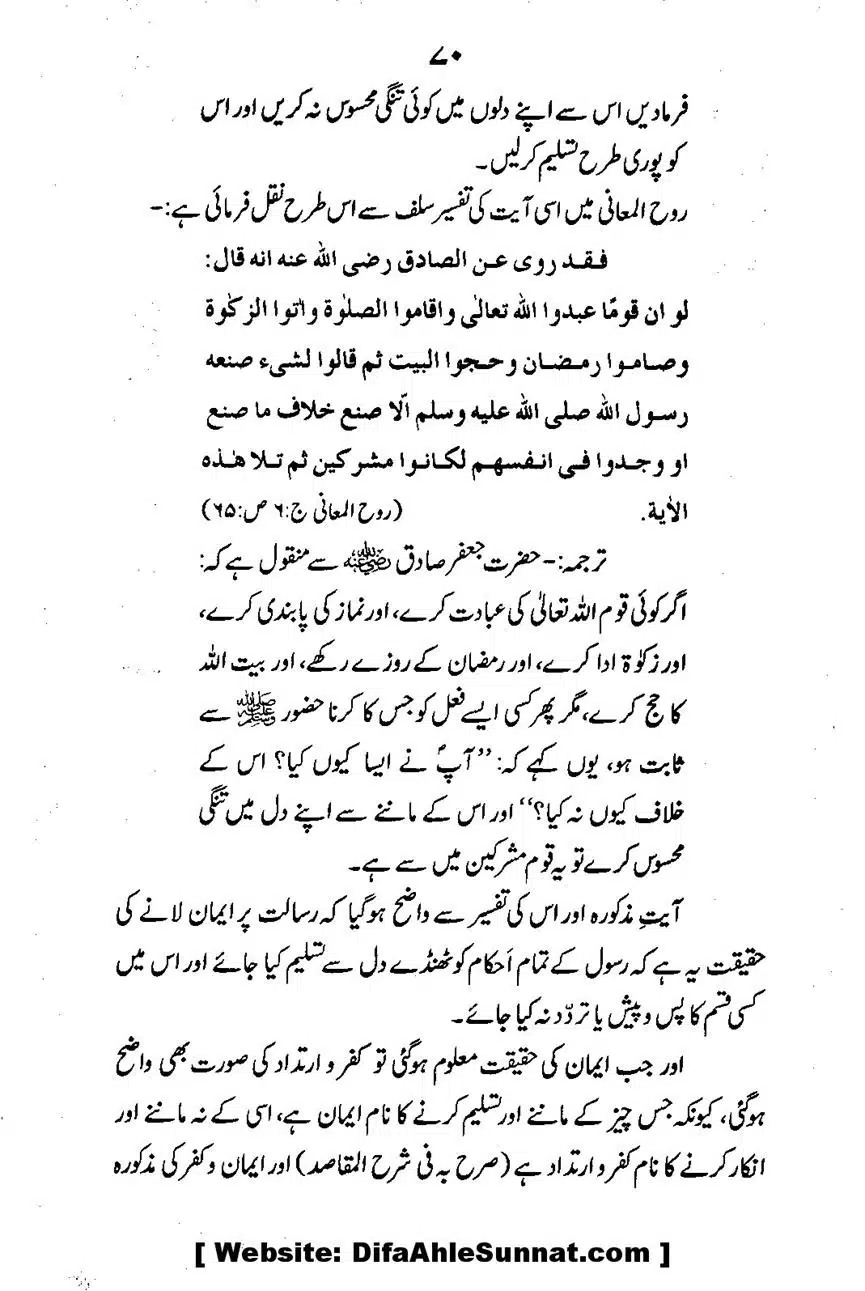 ۷۰
فرمادیں اس سے اپنے دلوں میں کوئی تنگی محسوس نہ کریں اور اس
کو پوری طرح تسلیم کرلیں۔
روح المعانی میں اسی آیت کی تفسیر سلف سے اس طرح نقل فرمائی ہے:-
فقد روى عن الصادق رضى الله عنه انه قال:
لو ان قومًا عبدوا الله تعالٰى واقاموا الصلٰوة واٰتوا الزكٰوة
وصاموا رمضان وحجوا البيت ثم قالوا لشىء صنعه
رسول الله صلى الله عليه وسلم ألّا صنع خلاف ما صنع
او وجدوا فى انفسهم لكانوا مشركين ثم تلا هٰذه
الاٰية. (روح المعانی ج:۶ ص:۶۵)
ترجمہ:- حضرت جعفر صادق رضی اللہ عنہ سے منقول ہے کہ:
اگر کوئی قوم اللہ تعالیٰ کی عبادت کرے، اور نماز کی پابندی کرے،
اور زکوٰۃ ادا کرے، اور رمضان کے روزے رکھے، اور بیت اللہ
کا حج کرے، مگر پھر کسی ایسے فعل کو جس کا کرنا حضور ﷺ سے
ثابت ہو، یوں کہے کہ: ’’آپؐ نے ایسا کیوں کیا؟ اس کے
خلاف کیوں نہ کیا؟‘‘ اور اس کے ماننے سے اپنے دل میں تنگی
محسوس کرے تو یہ قوم مشرکین میں سے ہے۔
آیتِ مذکورہ اور اس کی تفسیر سے واضح ہوگیا کہ رسالت پر ایمان لانے کی
حقیقت یہ ہے کہ رسول کے تمام اَحکام کو ٹھنڈے دل سے تسلیم کیا جائے اور اس میں
کسی قسم کا پس و پیش یا تردّد نہ کیا جائے۔
اور جب ایمان کی حقیقت معلوم ہوگئی تو کفر و ارتداد کی صورت بھی واضح
ہوگئی، کیونکہ جس چیز کے ماننے اور تسلیم کرنے کا نام ایمان ہے، اسی کے نہ ماننے اور
انکار کرنے کا نام کفر و ارتداد ہے (صرح به فی شرح المقاصد) اور ایمان و کفر کی مذکورہ
[ Website: DifaAhleSunnat.com ]